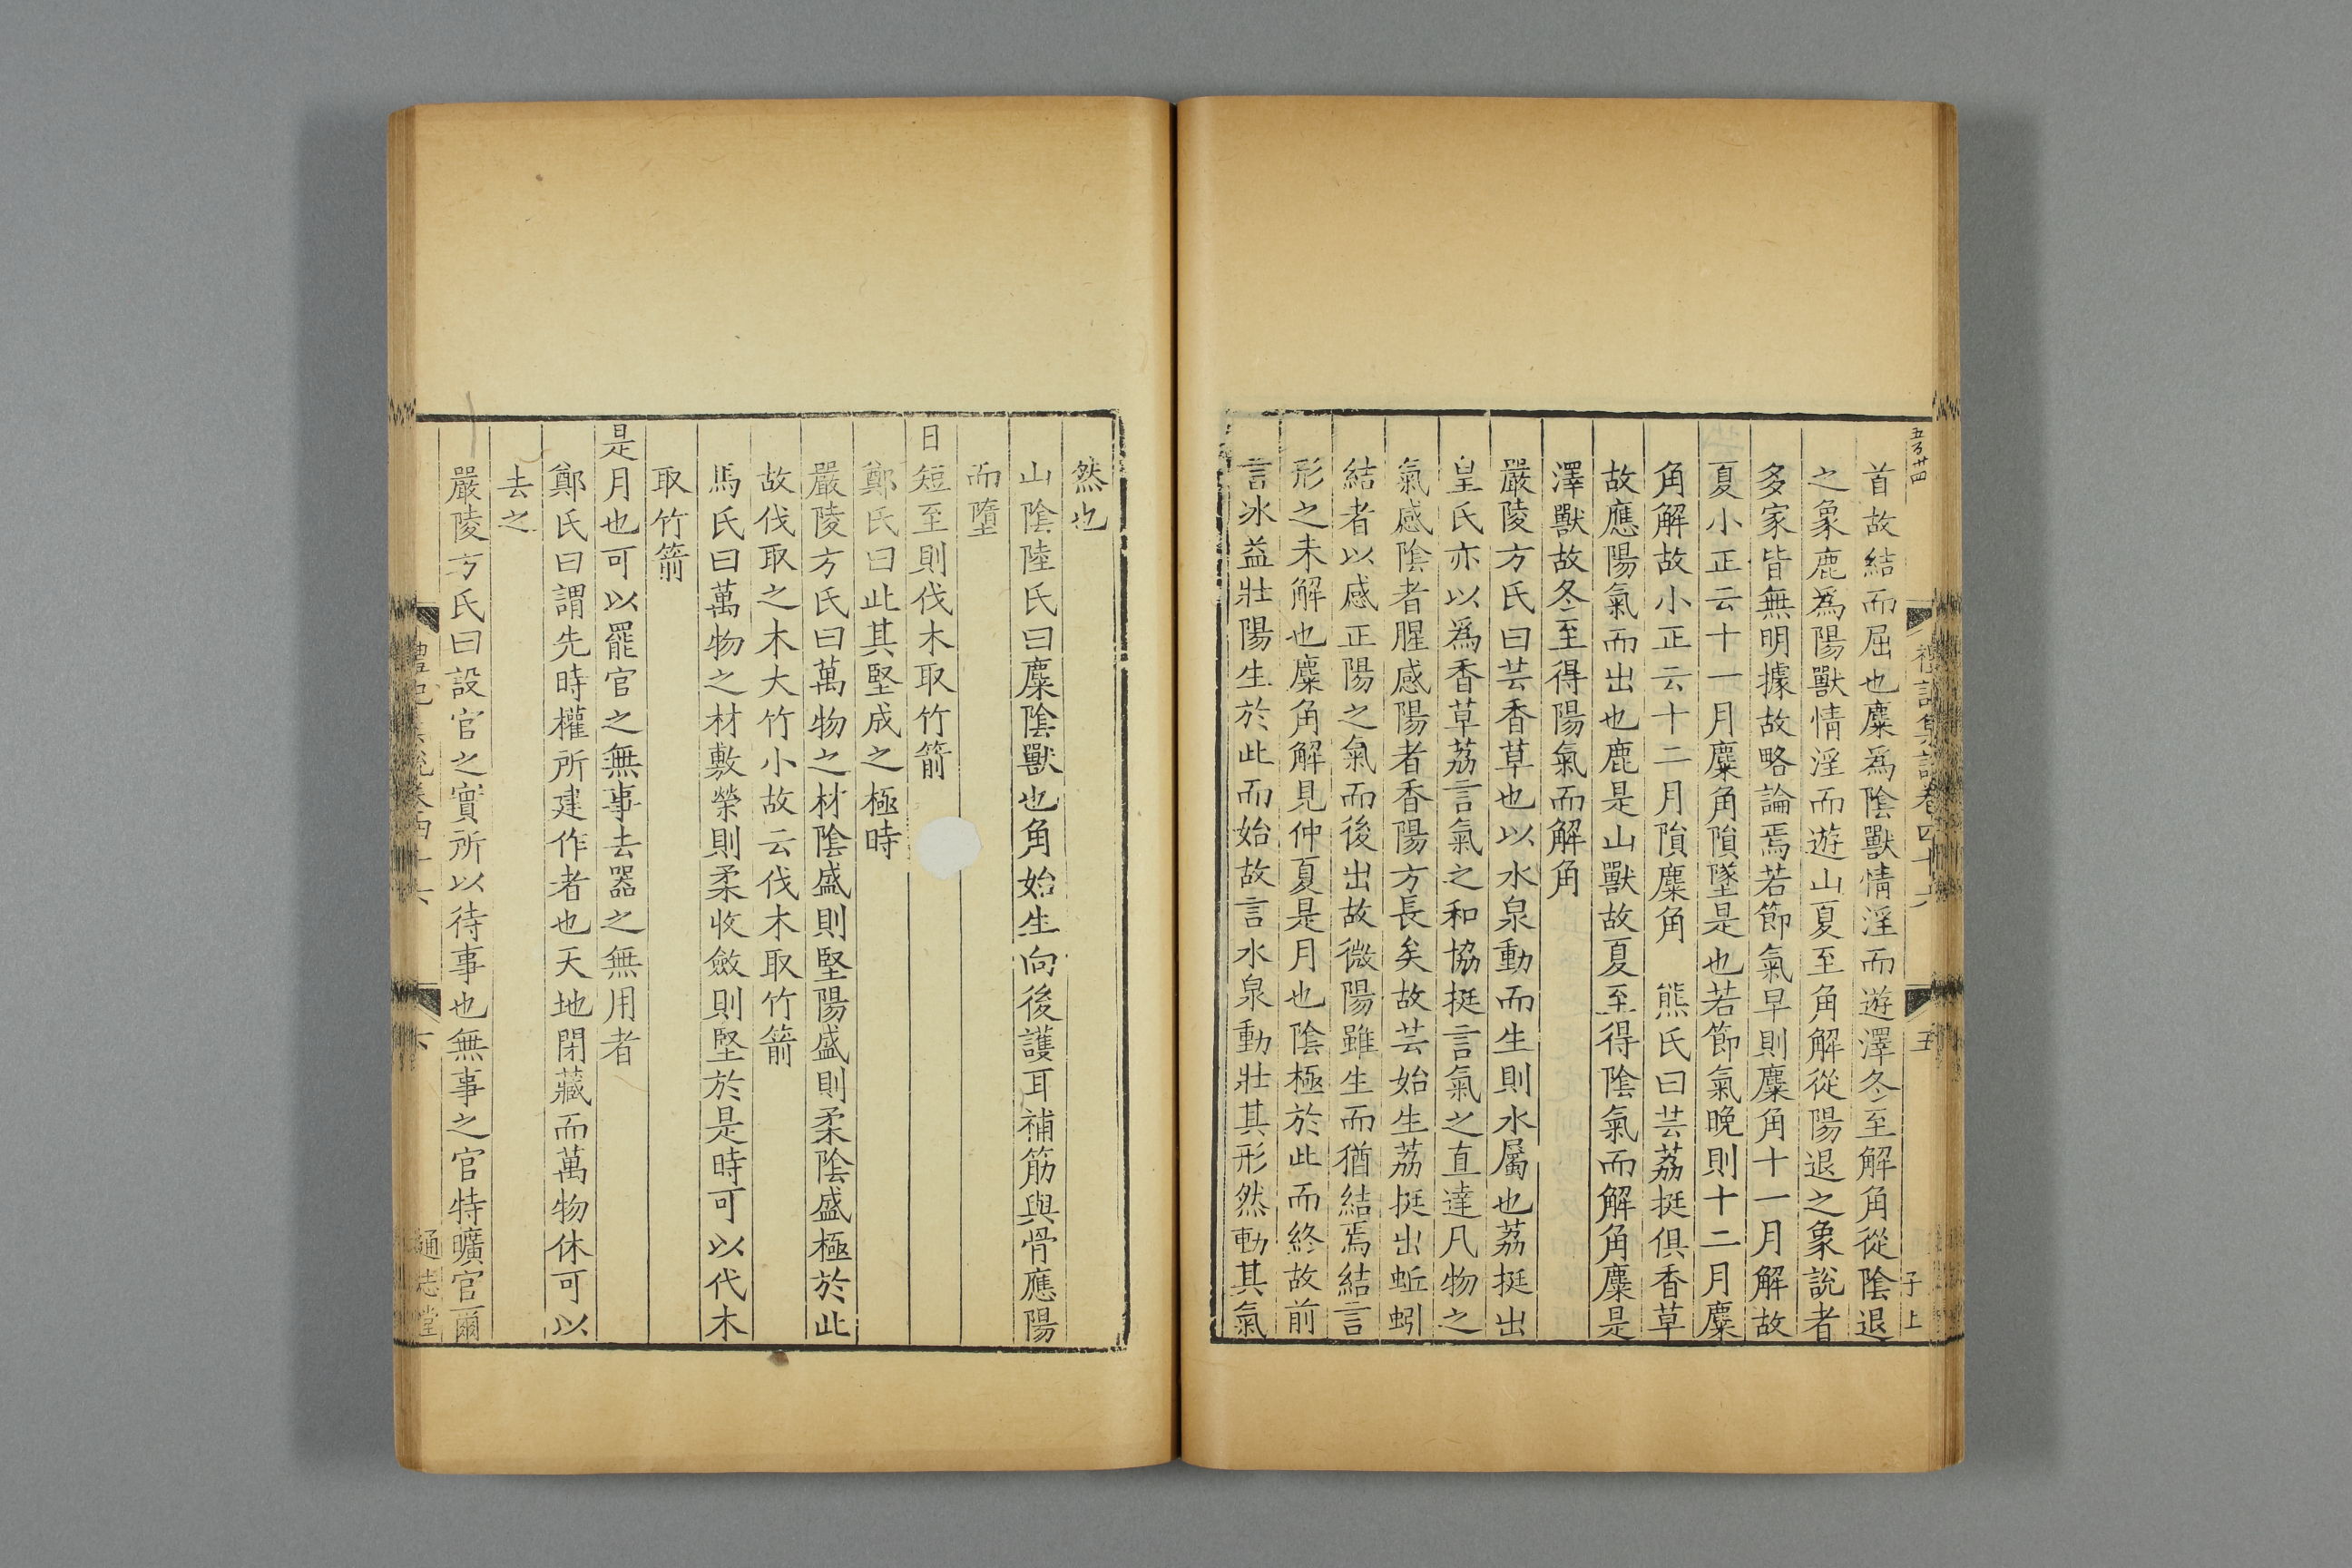 五百廿四
禮記集說卷四十六
五
子上
首故結而屈也麋爲陰獸情淫而遊澤冬至解角從陰退
之象鹿爲陽獸情淫而遊山夏至角解從陽退之象說者
多家皆無明據故略論焉若節氣早則麋角十一月解故
夏小正云十一月麋角隕墜是也若節氣晚則十二月麋
角解故小正云十二月隕麋角　熊氏曰芸荔挺俱香草
故應陽氣而出也鹿是山獸故夏至得陰氣而解角麋是
澤獸故冬至得陽氣而解角
嚴陵方氏曰芸香草也以水泉動而生則水屬也荔挺出
皇氏亦以爲香草荔言氣之和協挺言氣之直達凡物之
氣感陰者腥感陽者香陽方長矣故芸始生荔挺出蚯蚓
結者以感正陽之氣而後出故微陽雖生而猶結焉結言
形之未解也麋角解見仲夏是月也陰極於此而終故前
言冰益壯陽生於此而始故言水泉動壯其形然動其氣
然也
山陰陸氏曰麋陰獸也角始生向後護耳補筋與骨應陽
而墮
日短至則伐木取竹箭
鄭氏曰此其堅成之極時
嚴陵方氏曰萬物之材陰盛則堅陽盛則柔陰盛極於此
故伐取之木大竹小故云伐木取竹箭
馬氏曰萬物之材敷榮則柔收斂則堅於是時可以代木
取竹箭
是月也可以罷官之無事去器之無用者
鄭氏曰謂先時權所建作者也天地閉藏而萬物休可以
去之
嚴陵方氏曰設官之實所以待事也無事之官特曠官爾
禮記集說卷四十六
六
通志堂